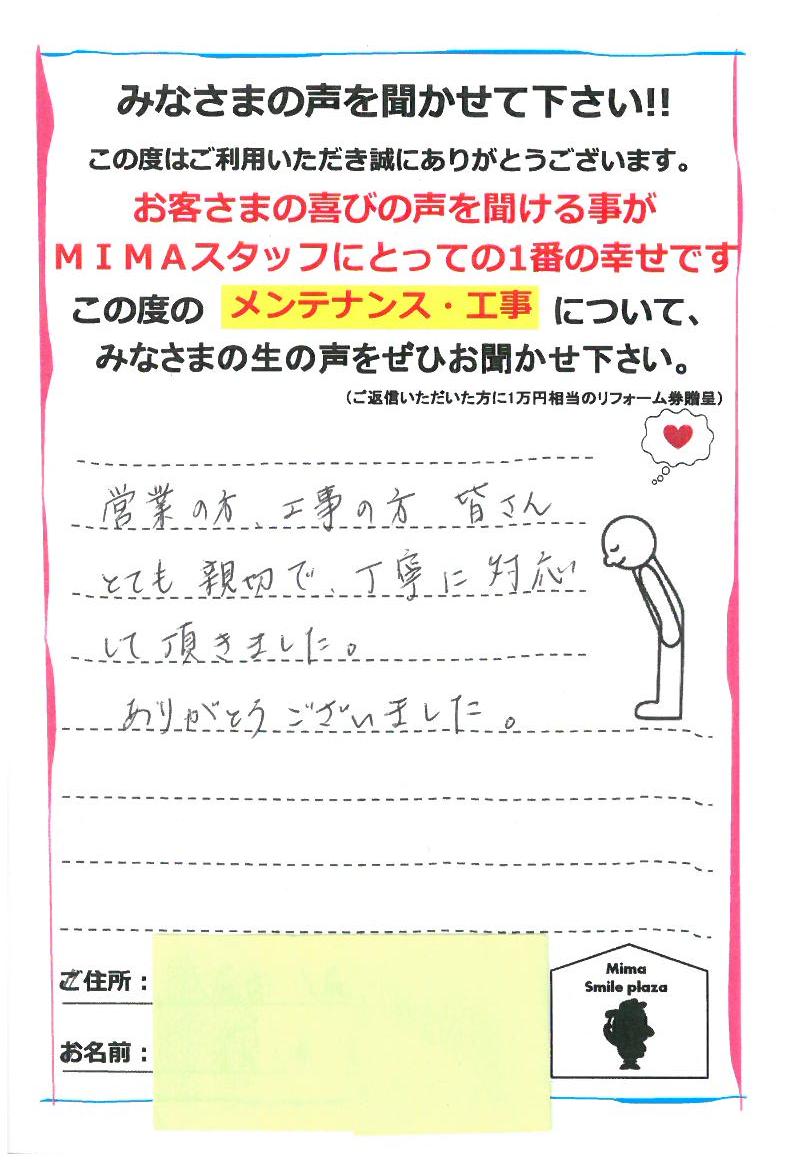 みなさまの声を聞かせて下さい!!
この度はご利用いただき誠にありがとうございます。
お客さまの喜びの声を聞ける事が
MIMAスタッフにとっての1番の幸せです
この度の メンテナンス・工事 について、
みなさまの生の声をぜひお聞かせ下さい。
(ご返信いただいた方に1万円相当のリフォーム券贈呈)
営業の方、工事の方 皆さん
とても親切で、丁寧に対応
して頂きました。
ありがとうございました。
ご住所:
お名前:
Mima
Smile plaza